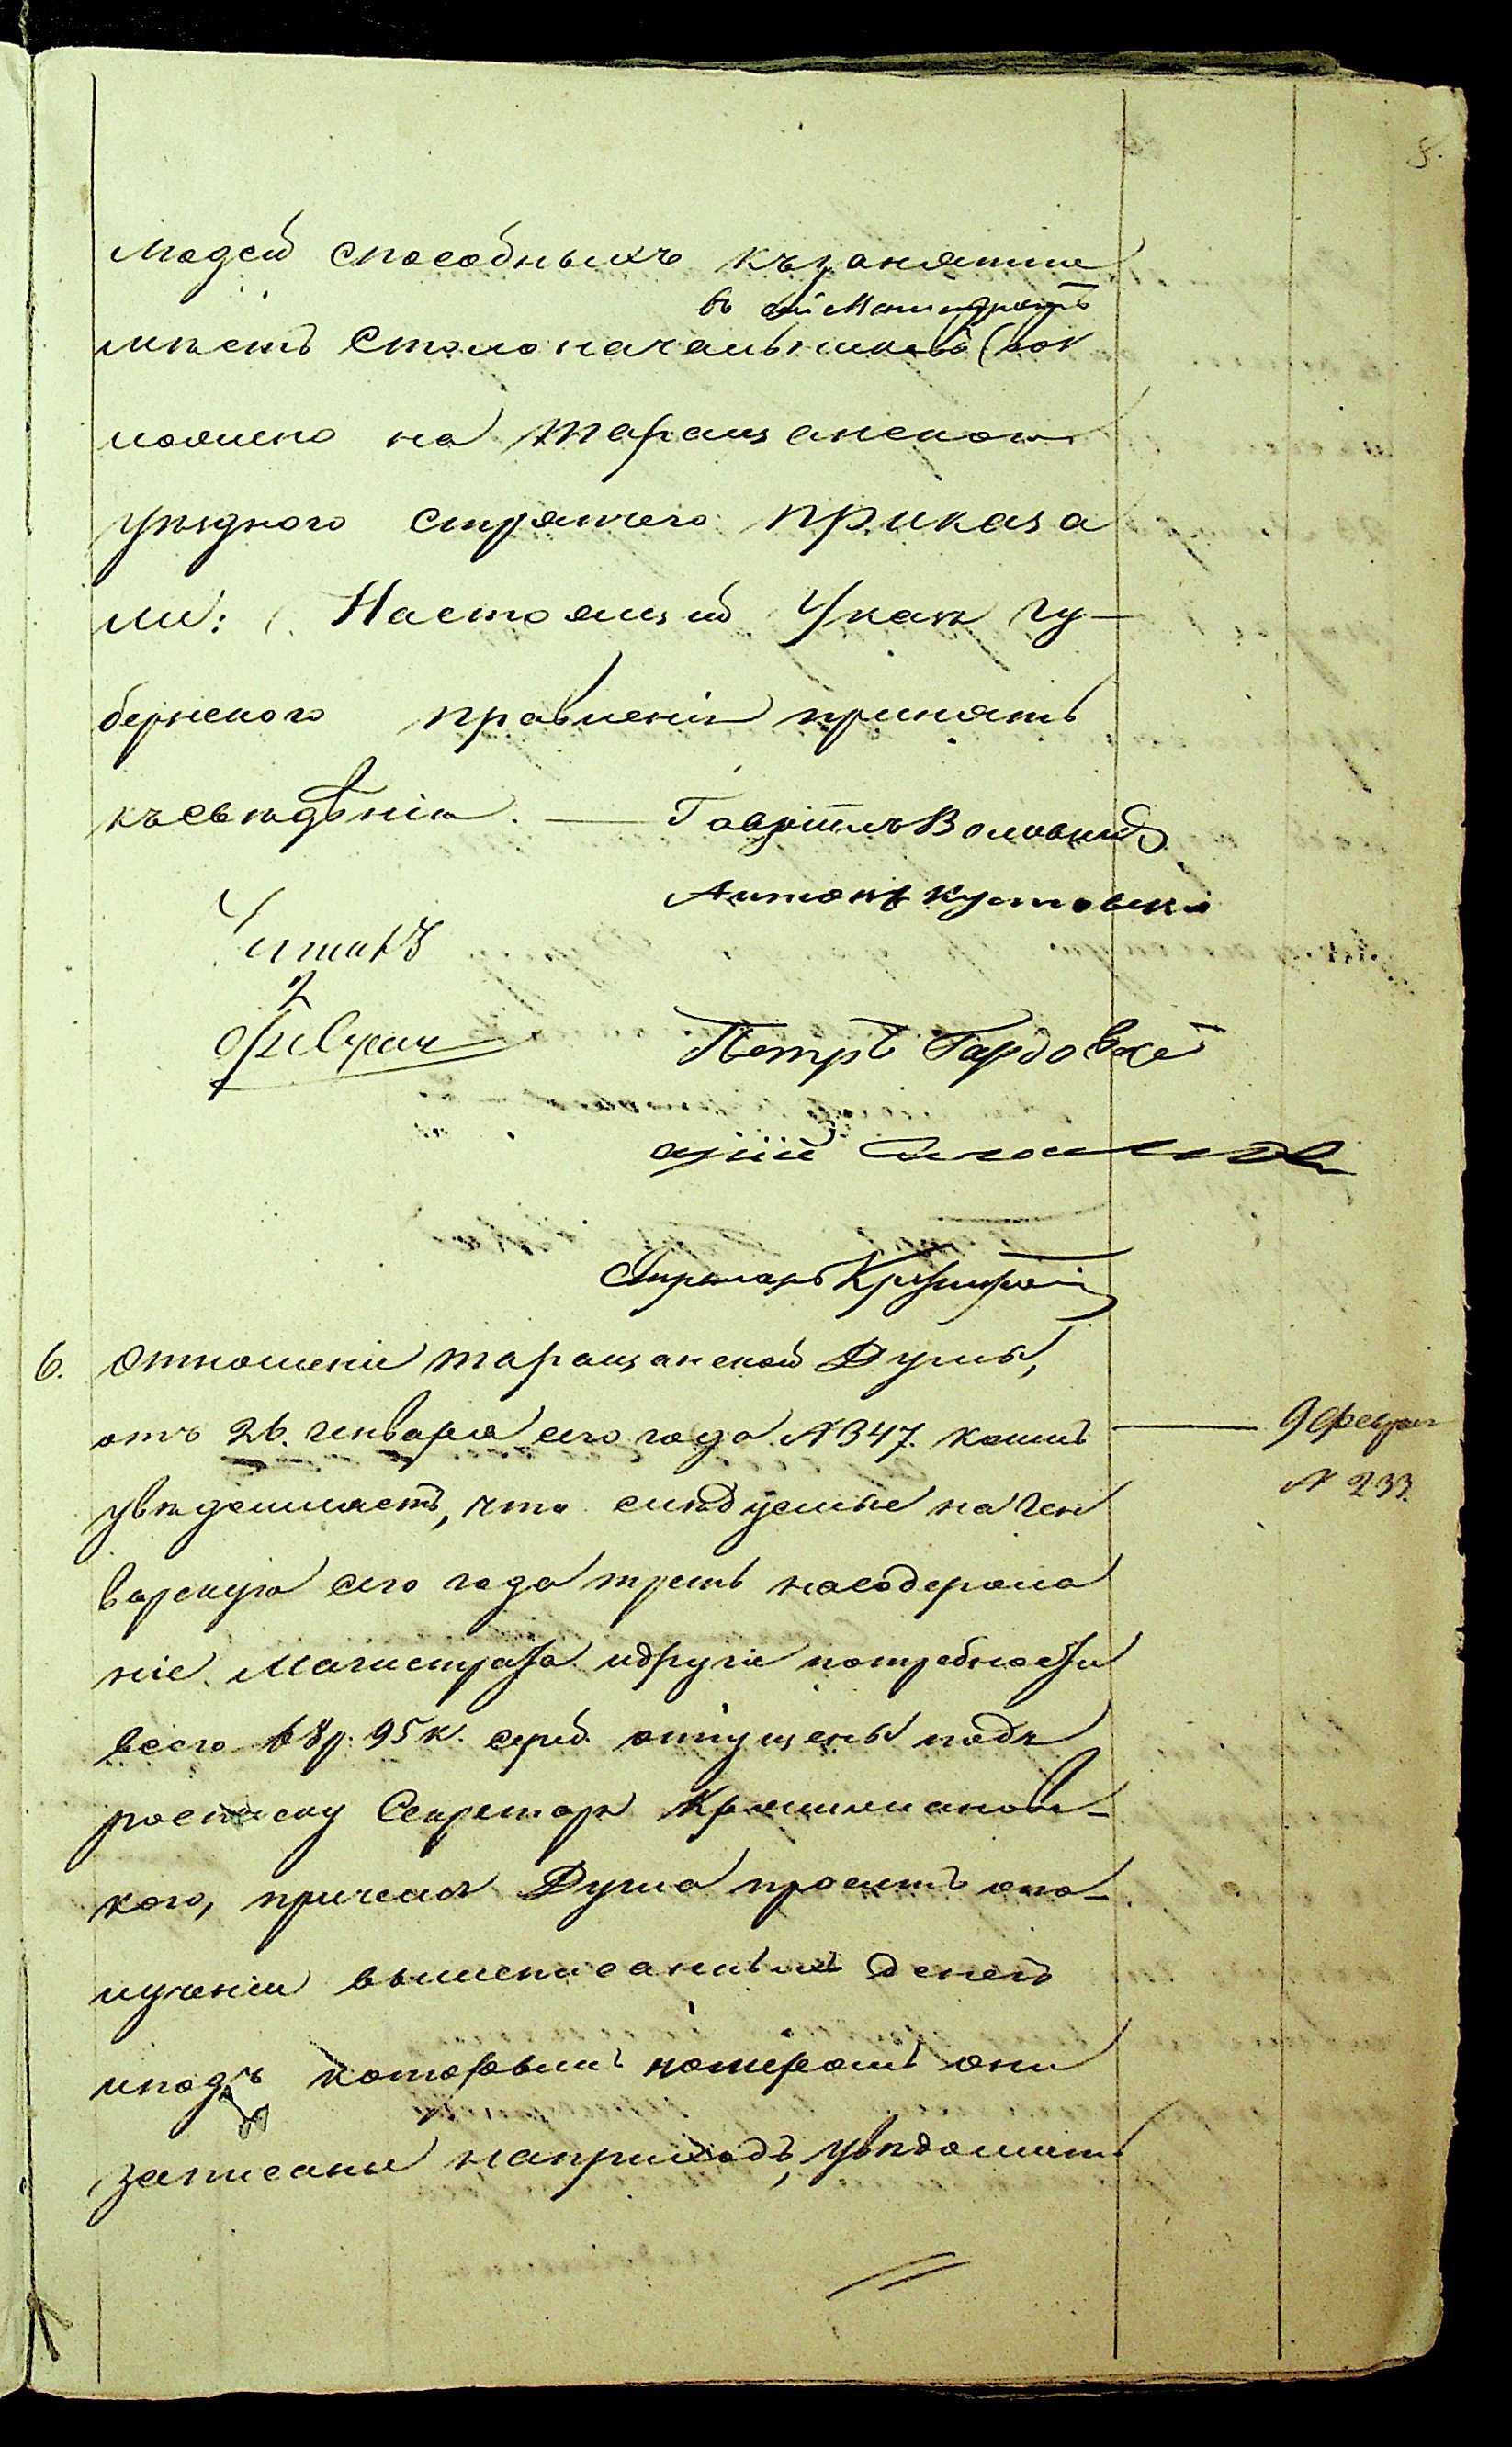 5.
людей способныхъ къ занятию
въ сей Магистратъ
мѣстъ столоначальниковъ (воз
можено на таращанскаго
уѣзднаго стряпчего приказа
ми: Настоящій Указъ гу-
бернскаго правленія принять
къ сведѣнію. — Гавріилъ
Антонъ Кутовскі
Читалъ
2
Февраля
Петръ Гардовскі
Секретарь
6. Отношеніе таращанской Думы,
отъ 26. генваря сего года №347. коимъ — 9 февраля
№ 233.
увѣдомляетъ, что слѣдуемые на ген
варскую сего года треть на содержа
ніе Магистрата и другіе потребности
всего р. 95 к. сереб. отпущены подъ
росписку Секретаря
кого, причемъ Дума проситъ опо-
лученіи вышеписанныхъ денегъ
иподъ которымъ номеромъ они
записаны наприходъ, увѣдомить